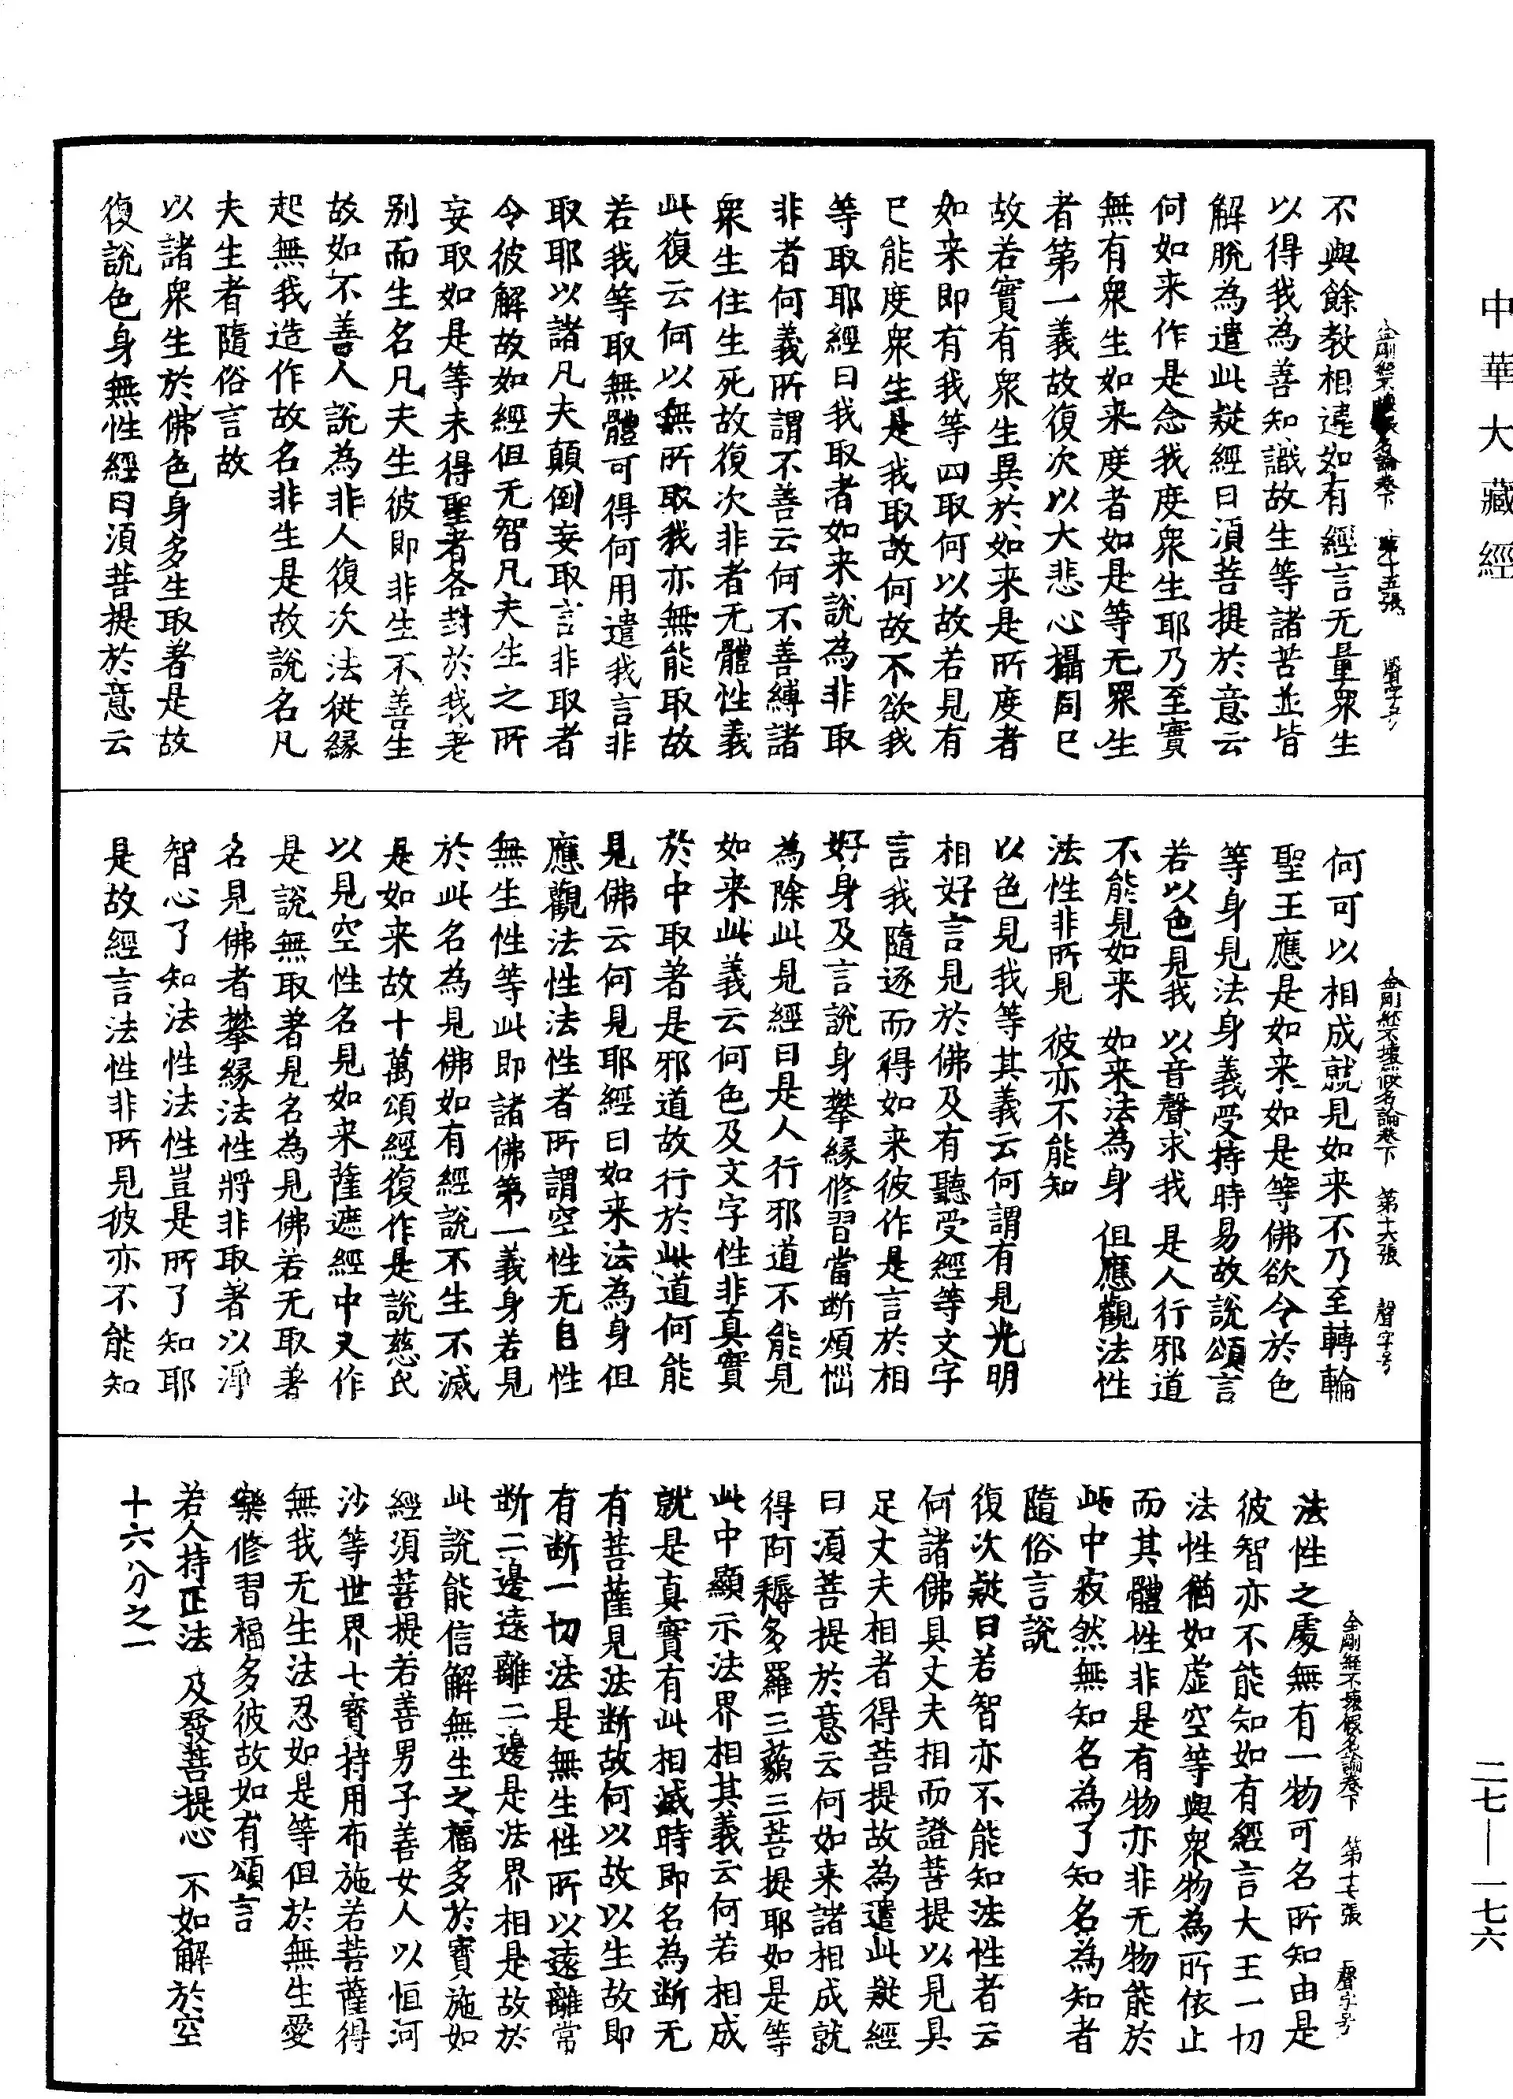 中華大藏經
金剛經不壞假名論卷下 第十五張 聲字号
不與餘教相違如有經言无量衆生
以得我為善知識故生等諸苦並皆
解脫為遣此疑經曰須菩提於意云
何如来作是念我度衆生耶乃至實
無有衆生如来度者如是等无衆生
者第一義故復次以大悲心攝同已
故若實有衆生異於如来是所度者
如来即有我等四取何以故若見有
已能度衆生是我取故何故不欲我
等取耶經曰我取者如来說為非取
非者何義所謂不善云何不善縛諸
衆生住生死故復次非者无體性義
此復云何以無所取我亦無能取故
若我等取無體可得何用遣我言非
取取耶以諸凡夫顛倒妄取言非取者
令彼解故如經但无智凡夫生之所
妄取如是等未得聖者各封於我老
别而生名凡夫生彼即非生不善生
故如不善人說為非人復次法從緣
起無我造作故名非生是故說名凡
夫生者隨俗言故
以諸衆生於佛色身多生取著是故
復說色身無性經曰須菩提於意云
金剛經不壞假名論卷下 第十六張 聲字号
何可以相成就見如来不乃至轉輪
聖王應是如来如是等佛欲令於色
等身見法身義受持時易故說頌言
若以色見我 以音聲求我 是人行邪道
不能見如来 如来法為身 但應觀法性
法性非所見 彼亦不能知
以色見我等其義云何謂有見光明
相好言見於佛及有聽受經等文字
言我隨逐而得如来彼作是言於相
好身及言說身攀緣修習當断煩惱
為除此見經曰是人行邪道不能見
如来此義云何色及文字性非真實
於中取著是邪道故行於此道何能
見佛云何見耶經曰如来法為身但
應觀法性法性者所謂空性无自性
無生性等此即諸佛第一義身若見
於此名為見佛如有經說不生不滅
是如来故十萬頌經復作是說慈氏
以見空性名見如来薩遮經中又作
是說無取著見名為見佛若无取著
名見佛者攀緣法性將非取著以淨
智心了知法性法性豈是所了知耶
是故經言法性非所見彼亦不能知
金剛經不壞假名論卷下 第十七張 聲字号
法性之處無有一物可名所知由是
彼智亦不能知如有經言大王一切
法性猶如虛空等與衆物為所依止
而其體性非是有物亦非无物能於
此中寂然無知名為了知名為知者
隨俗言說
復次疑曰若智亦不能知法性者云
何諸佛具丈夫相而證菩提以見具
足丈夫相者得菩提故為遣此疑經
曰須菩提於意云何如来諸相成就
得阿耨多羅三藐三菩提耶如是等
此中顯示法界相其義云何若相成
就是真實有此相滅時即名為断无
有菩薩見法断故何以故以生故即
有断一切法是無生性所以遠離常
断二邊遠離二邊是法界相是故於
此說能信解無生之福多於寶施如
經須菩提若善男子善女人以恒河
沙等世界七寶持用布施若菩薩得
無我无生法忍如是等但於無生愛
樂修習福多彼故如有頌言
若人持正法 及發菩提心 不如解於空
十六分之一
二七—一七六